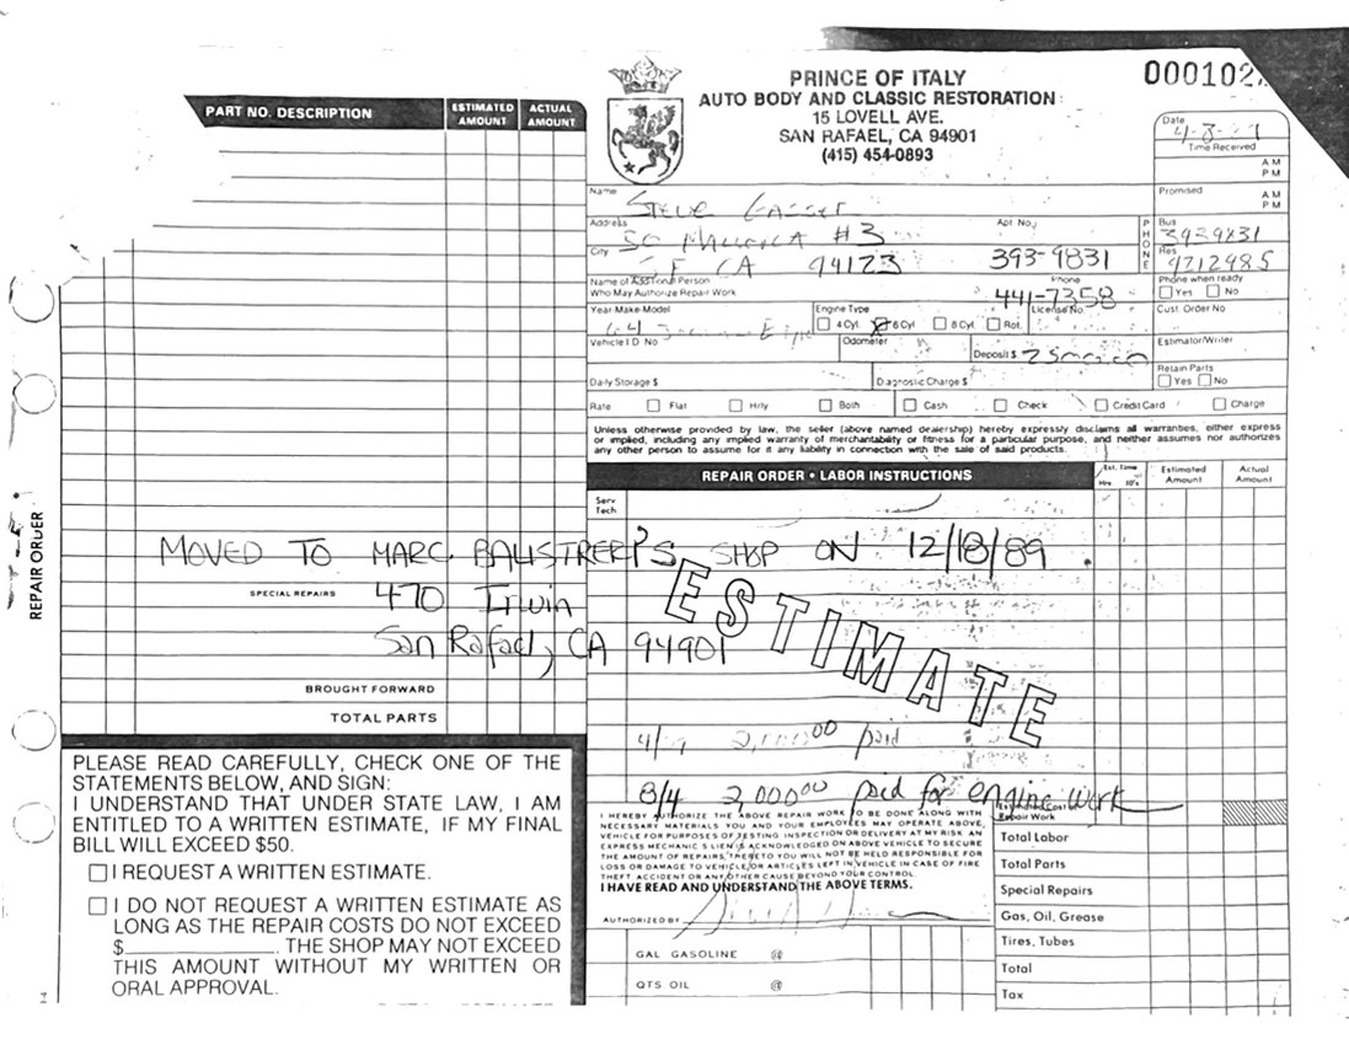 PRINCE OF ITALY
AUTO BODY AND CLASSIC RESTORATION
15 LOVELL AVE.
SAN RAFAEL, CA 94901
(415) 454-0893
000102
PART NO. DESCRIPTION
ESTIMATED AMOUNT
ACTUAL AMOUNT
Date 4-3-
Time Received
AM
PM
Name Steve
Promised
AM
PM
Address #3
Apt No.
PHONE
Bus 3939831
City SF CA 94123 393-9831
Res 9212985
Name of Additional Person
Who May Authorize Repair Work
Phone 441-7358
Phone when ready
Yes No
Year-Make-Model 64
Engine Type
4 Cyl 6 Cyl 8 Cyl Rot.
License No.
Cust. Order No
Vehicle I D No
Odometer
Deposit $
Estimator/Writer
Daily Storage $
Diagnostic Charge $
Retain Parts
Yes No
Rate Flat Hrly Both Cash Check Credit Card Charge
Unless otherwise provided by law, the seller (above named dealership) hereby expressly disclaims all warranties, either express
or implied, including any implied warranty of merchantability or fitness for a particular purpose, and neither assumes nor authorizes
any other person to assume for it any liability in connection with the sale of said products.
REPAIR ORDER • LABOR INSTRUCTIONS
Est. Time
Hrs 10's
Estimated Amount
Actual Amount
Serv Tech
REPAIR ORDER
MOVED TO MARC BALISTRERI'S SHOP ON 12/18/89.
SPECIAL REPAIRS
470 Irwin
San Rafael, CA 94901
ESTIMATE
BROUGHT FORWARD
TOTAL PARTS
4/ 2,000.00 paid
8/4 2,000.00 paid for engine work
PLEASE READ CAREFULLY, CHECK ONE OF THE
STATEMENTS BELOW, AND SIGN:
I UNDERSTAND THAT UNDER STATE LAW, I AM
ENTITLED TO A WRITTEN ESTIMATE, IF MY FINAL
BILL WILL EXCEED $50.
I REQUEST A WRITTEN ESTIMATE.
I DO NOT REQUEST A WRITTEN ESTIMATE AS
LONG AS THE REPAIR COSTS DO NOT EXCEED
$ . THE SHOP MAY NOT EXCEED
THIS AMOUNT WITHOUT MY WRITTEN OR
ORAL APPROVAL.
I HEREBY AUTHORIZE THE ABOVE REPAIR WORK TO BE DONE ALONG WITH
NECESSARY MATERIALS YOU AND YOUR EMPLOYEES MAY OPERATE ABOVE,
VEHICLE FOR PURPOSES OF TESTING INSPECTION OR DELIVERY AT MY RISK AN
EXPRESS MECHANIC S LIEN IS ACKNOWLEDGED ON ABOVE VEHICLE TO SECURE
THE AMOUNT OF REPAIRS THERETO YOU WILL NOT BE HELD RESPONSIBLE FOR
LOSS OR DAMAGE TO VEHICLE OR ARTICLES LEFT IN VEHICLE IN CASE OF FIRE
THEFT ACCIDENT OR ANY OTHER CAUSE BEYOND YOUR CONTROL
I HAVE READ AND UNDERSTAND THE ABOVE TERMS.
AUTHORIZED BY
GAL GASOLINE @
QTS OIL @
Estimated Cost of Repair Work
Total Labor
Total Parts
Special Repairs
Gas, Oil, Grease
Tires, Tubes
Total
Tax